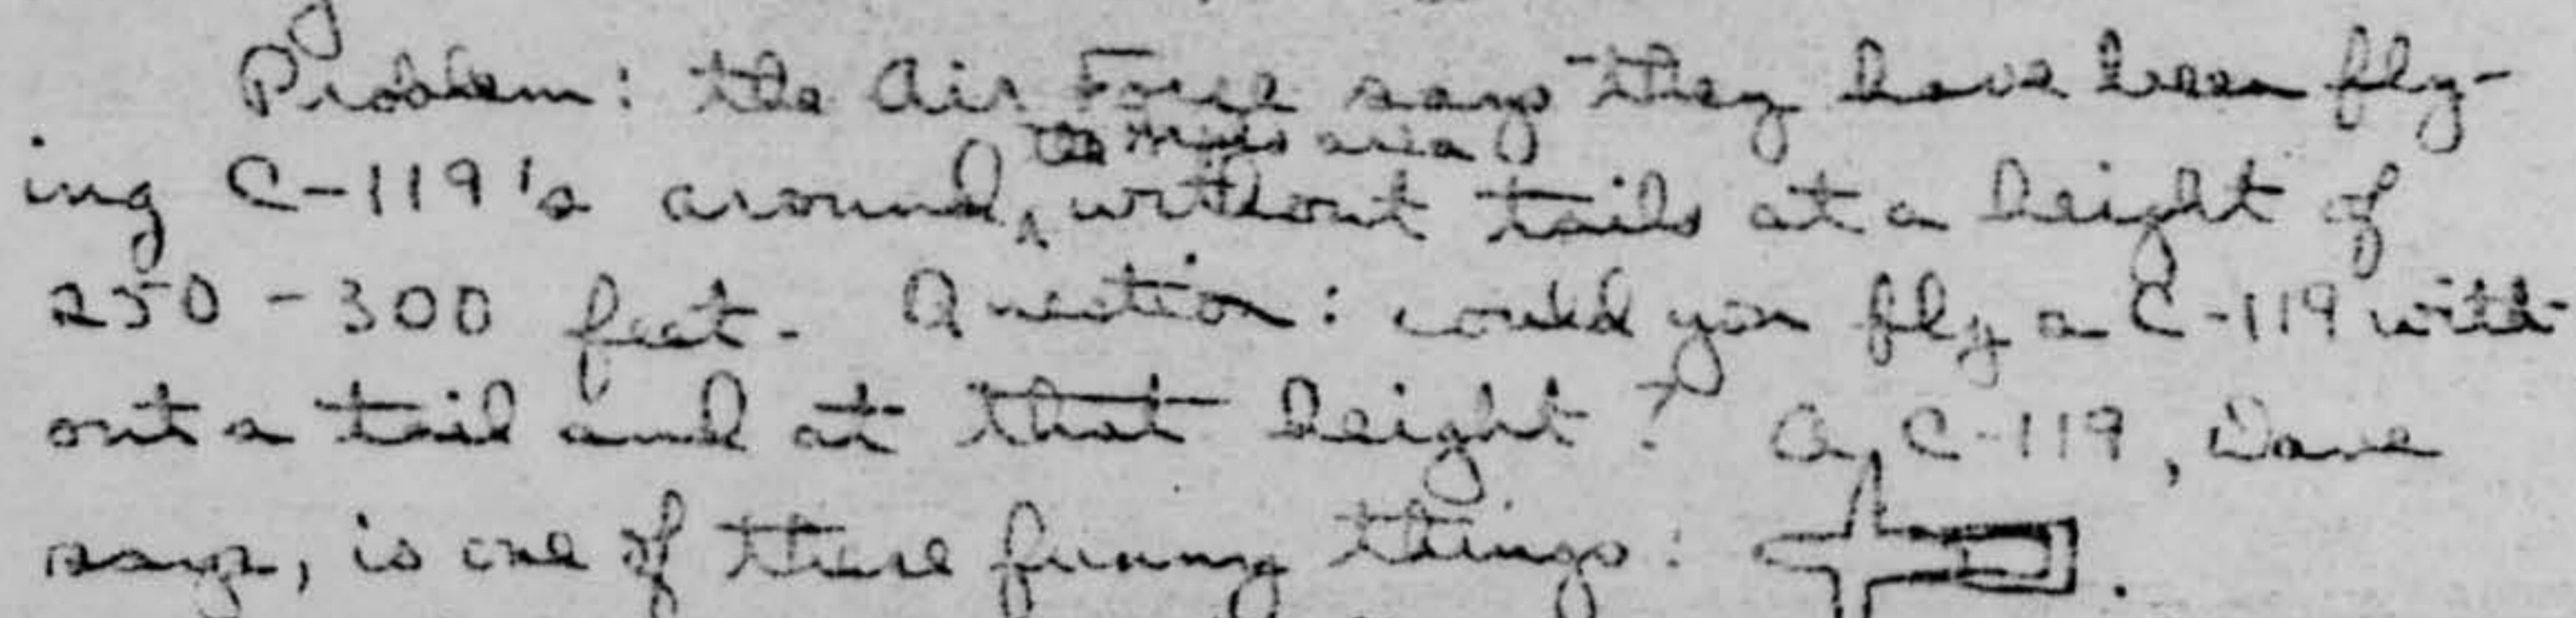 Problem: the Air Force says they have been fly-
ing C-119's around, the area without tails at a height of
250 - 300 feet. Question: could you fly a C-119 with-
out a tail and at that height? A C-119, Dave
says, is one of these funny things: